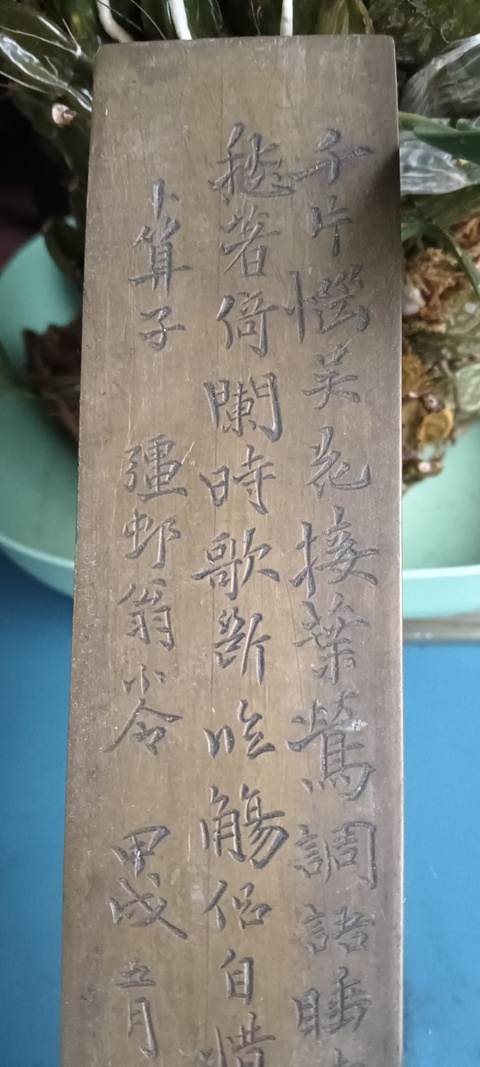 千片惱吴花接葉鶯調語睡
愁著倚闌時歌斷吟觴侶自惜
卜算子 彊邨翁小令 甲戌五月